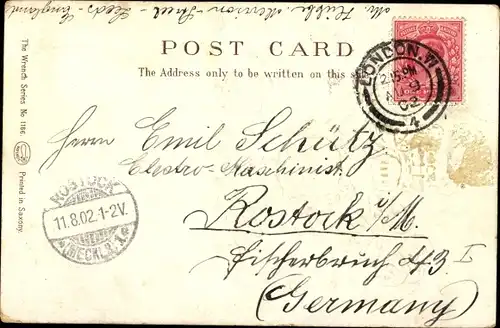 Mr Hibbe. Merrion-Street-Leeds-England
POST CARD
The Address only to be written on this
LONDON. W
2.15 PM
AU 9
02
4
Herrn Emil Schütz
Electro-Maschinist
Rostock i/M.
Fischerbruch 43 I
(Germany)
ROSTOCK
11.8.02.1-2V.
(MECKLB.)
The Wrench Series No 1186.
Printed in Saxony.